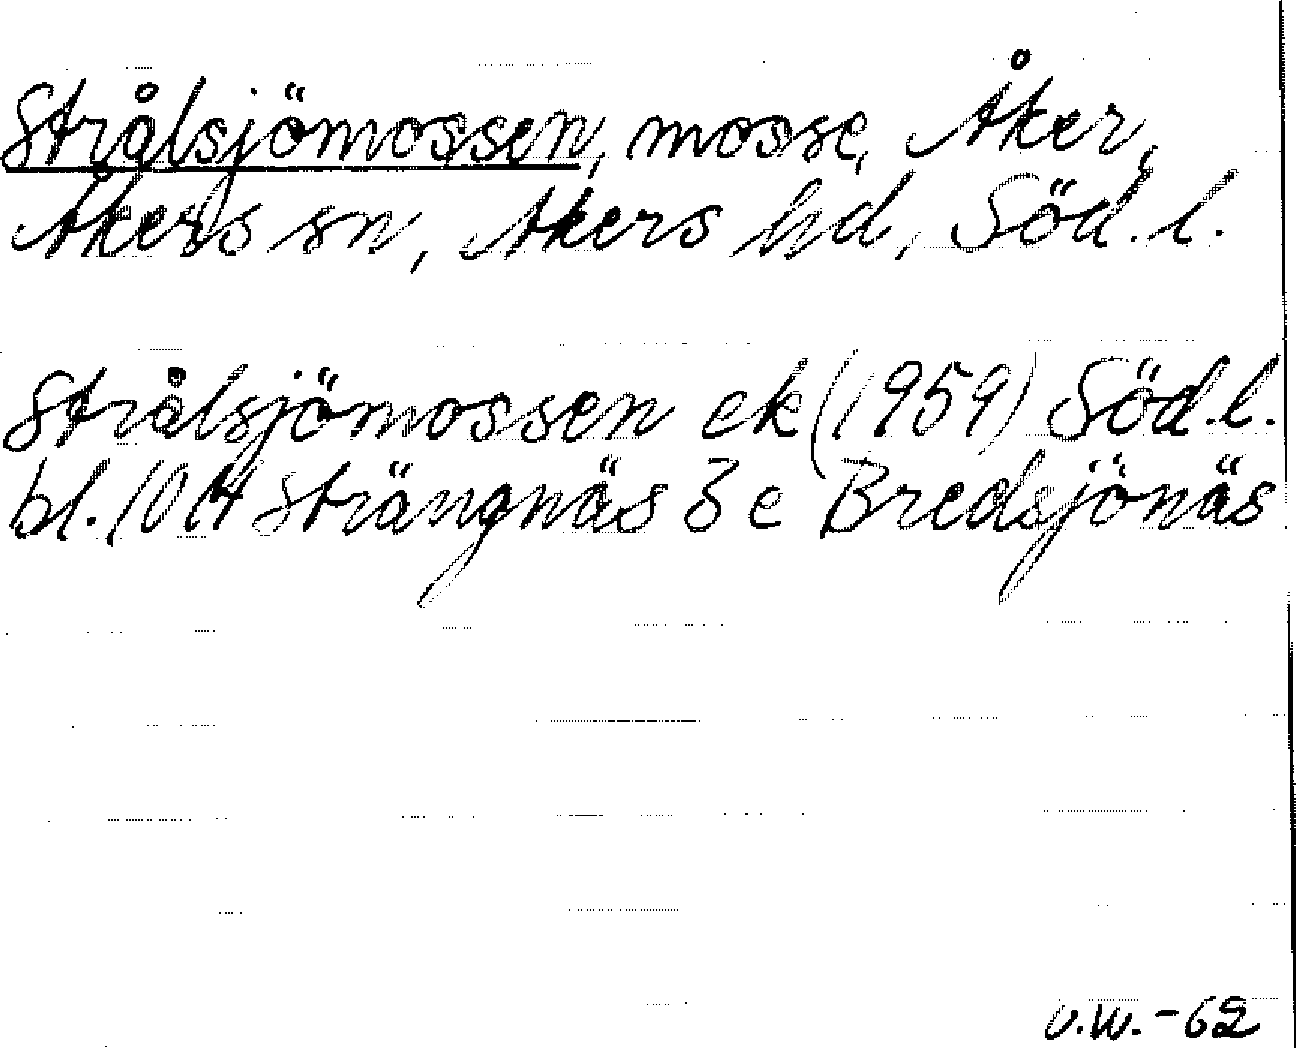 Strålsjömossen, mosse, Åker,
Åkers sn, Åkers hd, Söd. l.
Strålsjömossen ek (1959) Söd. l.
bl. 10 H Strängnäs 3 e Bredsjönäs
U.W. -62